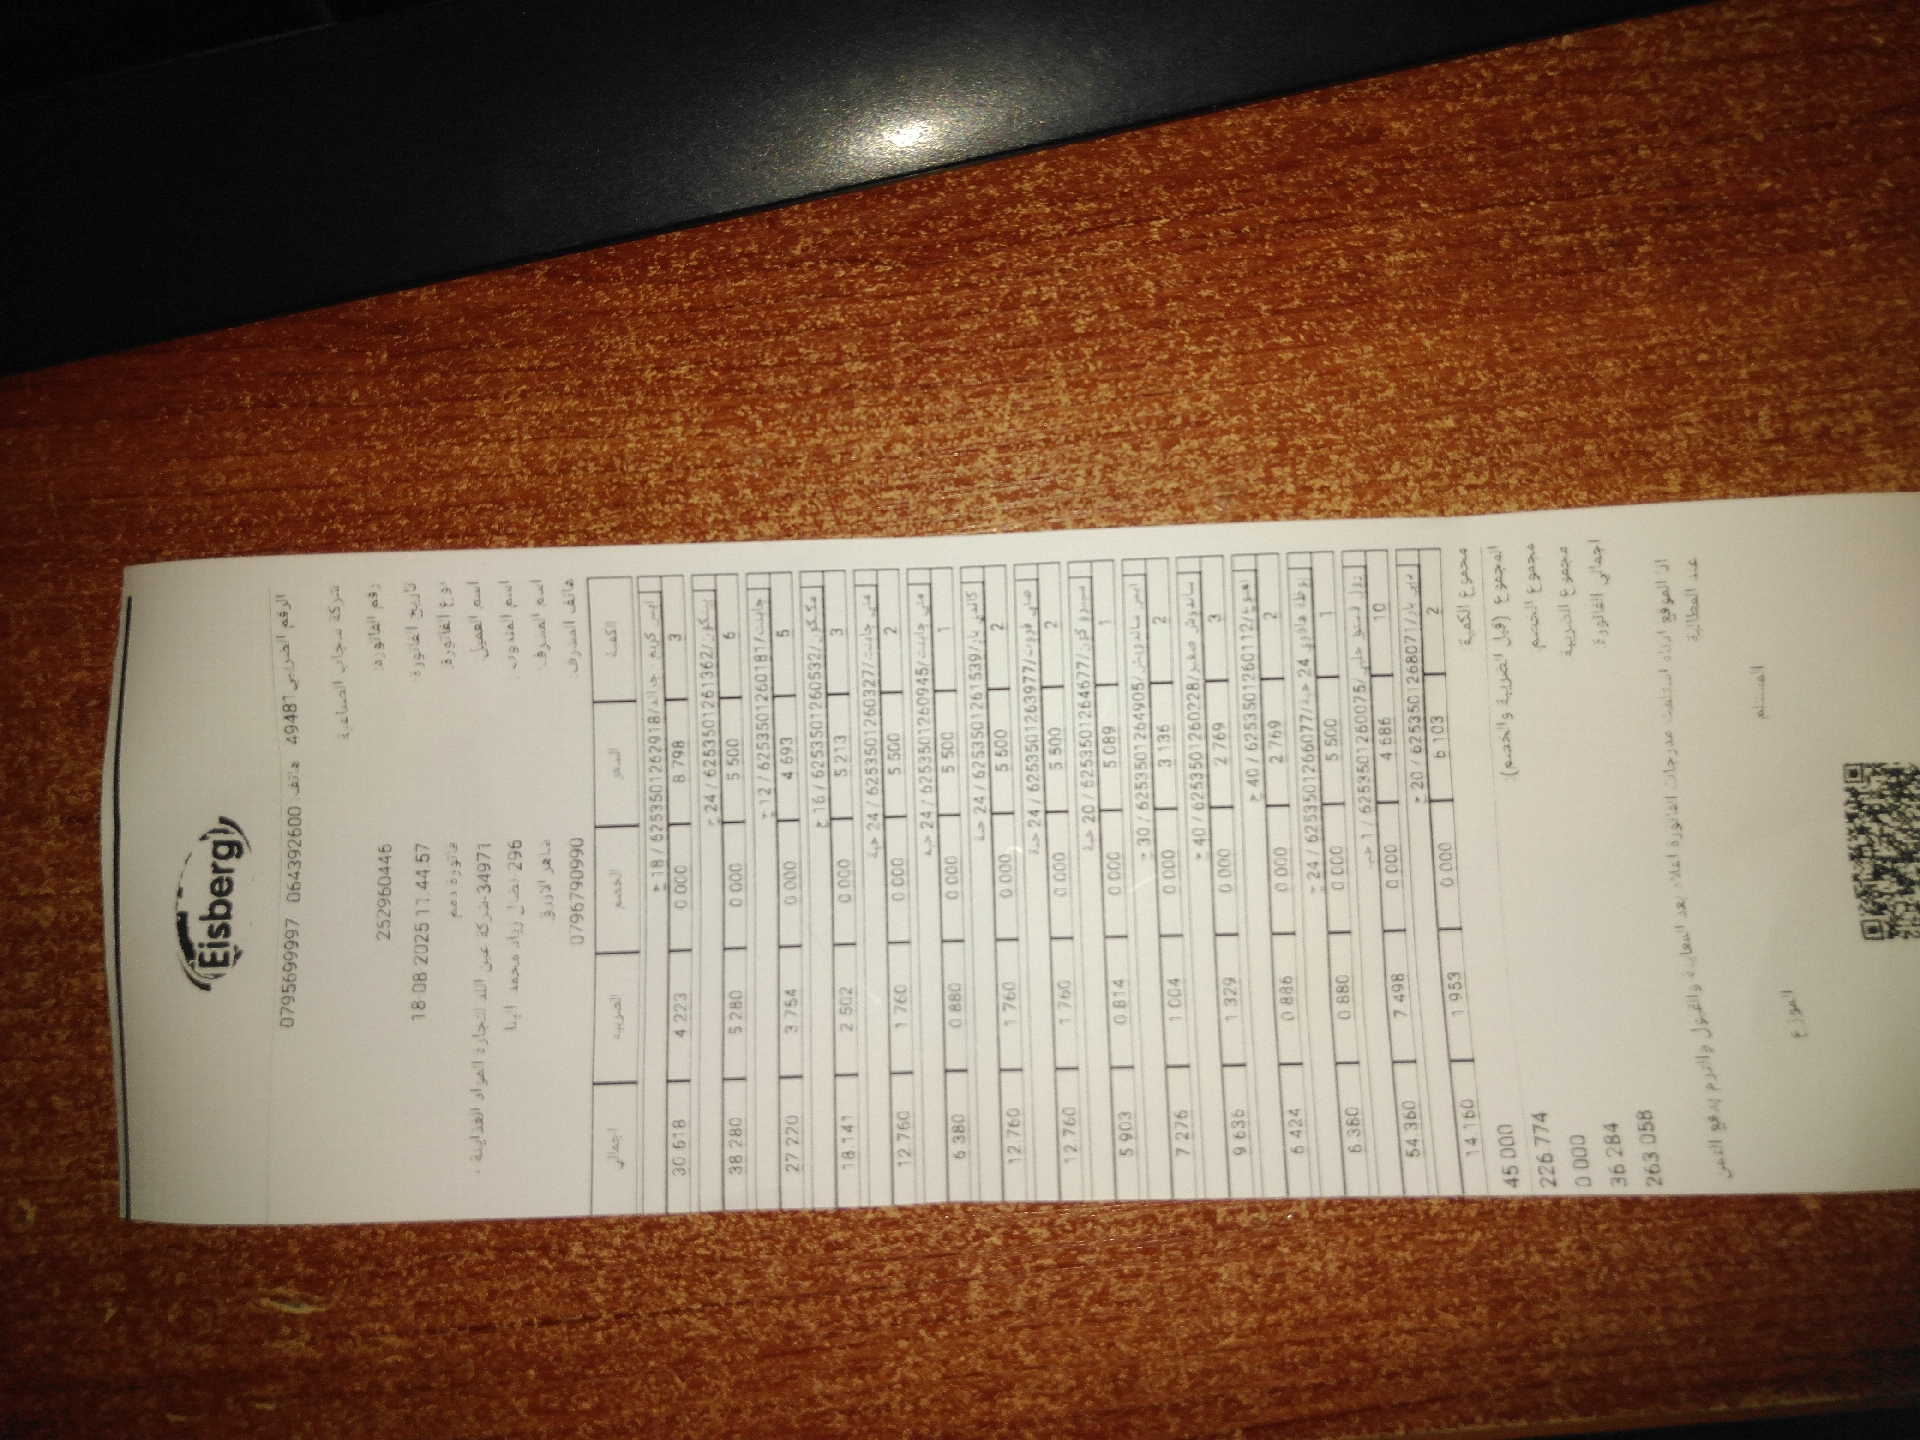 Eisberg
الرقم الضريبي 49481 هاتف 064392600 0795699997
شركة سجاب الصناعية
رقم الفاتورة: 252960446
تاريخ الفاتورة 18 08 2025 11 44 57
نوع الفاتورة فاتورة ذمم
اسم العميل 34971-شركة عين الله لتجارة المواد الغذائية -
اسم المندوب: 296-نضال زياد محمد البنا
اسم المشرف ماهر الازرق
هاتف المشرف: 0796790990
الكمية السعر الخصم الضريبة اجمالي
ايس كريم - جداند/6253501262918 / 18 ح
3 8 798 0 000 4 223 30 618
بيسكون/6253501261362 / 24 ح
6 5 500 0 000 5 280 38 280
جاينت/6253501260181 / 12 ح
5 4 693 0 000 3 754 27 220
ميكون/6253501260532 / 16 ح
3 5 213 0 000 2 502 18 141
ميني جاينت/6253501260327 / 24 حبة
2 5 500 0 000 1 760 12 760
ميني جاينت/6253501260945 / 24 حبة
1 5 500 0 000 0 880 6 380
كاندي بار/6253501261539 / 24 حبة
2 5 500 0 000 1 760 12 760
فروت/6253501263977 / 24 حبة
2 5 500 0 000 1 760 12 760
كون/6253501264677 / 20 حبة
1 5 089 0 000 0 814 5 903
ايس ساندويش/6253501264905 / 30 ح
2 3 136 0 000 1 004 7 276
ساندويش صغير/6253501260228 / 40 ح
3 2 769 0 000 1 329 9 636
6253501260112 / 40 ح
2 2 769 0 000 0 886 6 424
24 حبة/6253501266077 / 24 ح
1 5 500 0 000 0 880 6 380
رول فستق حلبي/6253501260075 / 1
10 4 686 0 000 7 498 54 360
بار/6253501268071 / 20 ح
2 6 103 0 000 1 953 14 160
مجموع الكمية 45 000
المجموع (قبل الضريبة والخصم): 226 774
مجموع الخصم 0 000
مجموع الضريبة 36 284
اجمالي الفاتورة: 263 058
انا الموقع ادناه استلمت مدرجات الفاتورة اعلاه بعد المعاينة والقبول والتزم بدفع الثمن
عند المطالبة
المستلم
الموزع